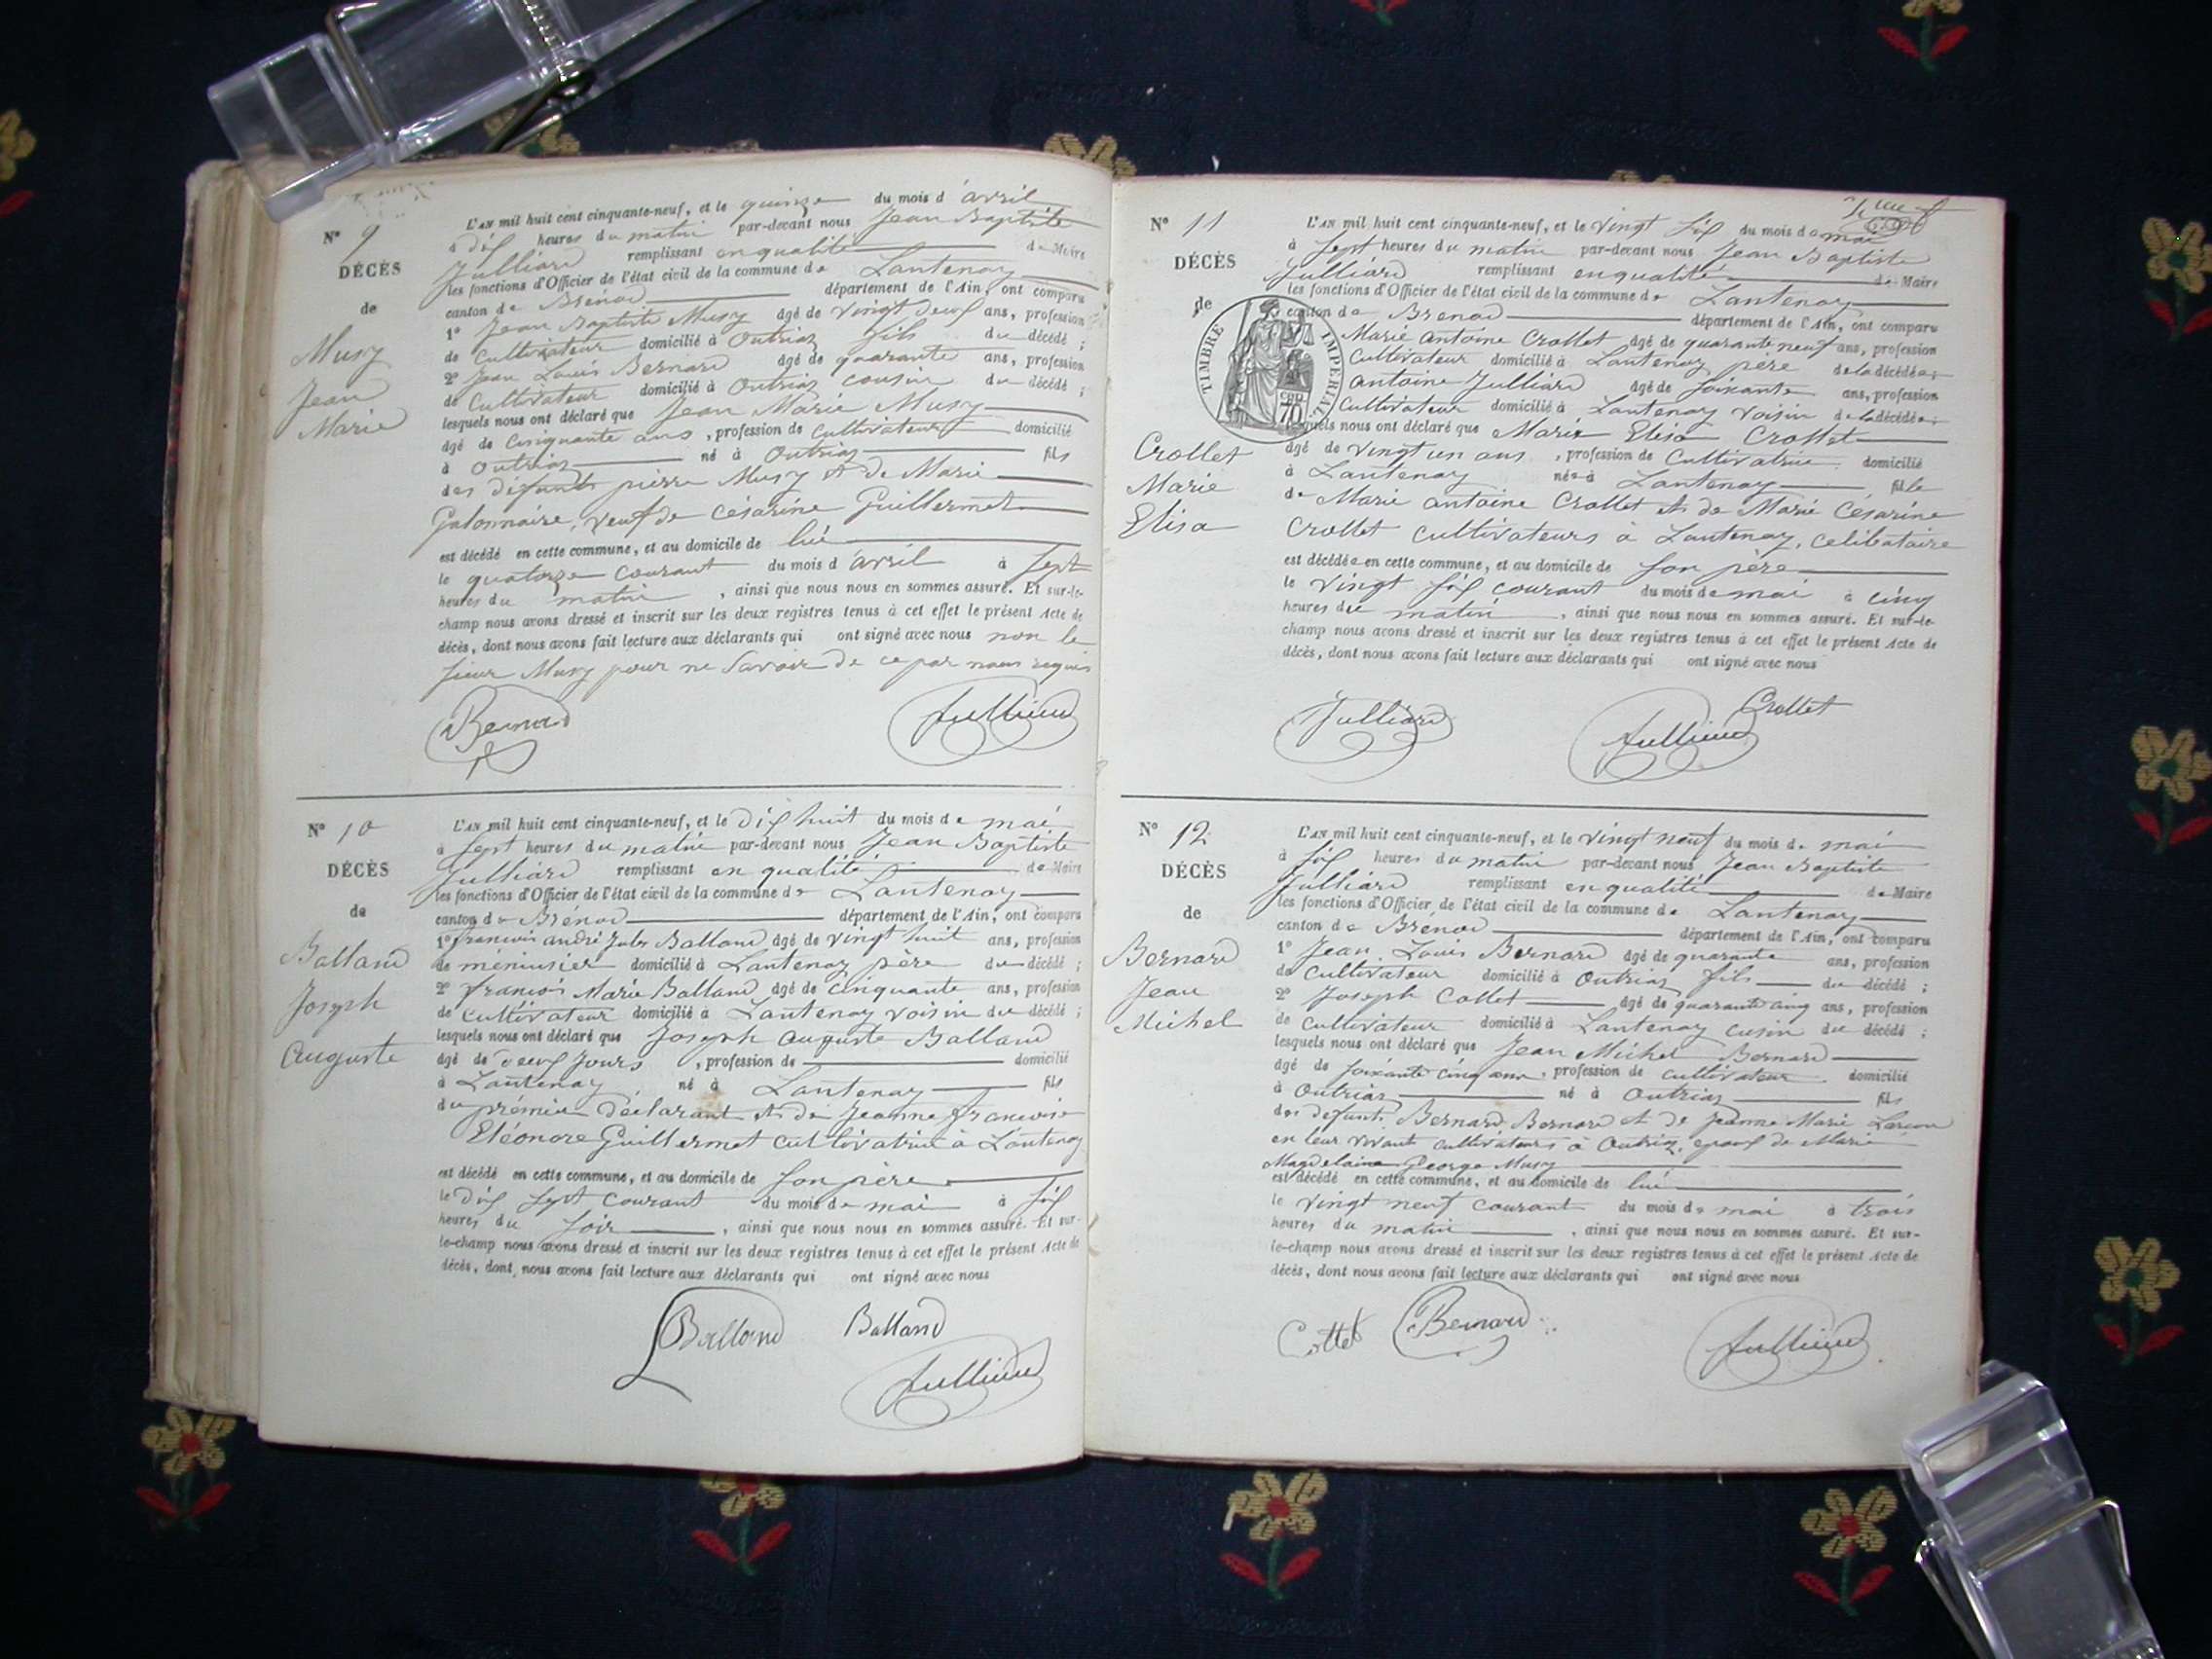 N° 9
DÉCÈS
de
Musy
Jean
Marie
L'AN mil huit cent cinquante-neuf, et le quinze du mois d'avril
à dix heures du matin par-devant nous Jean Baptiste
Julliard remplissant en qualité de Maire
les fonctions d'Officier de l'état civil de la commune de Lantenay
canton de Brénod département de l'Ain, ont comparu
1° Jean Baptiste Musy âgé de vingt deux ans, profession
de cultivateur domicilié à Outriaz fils du décédé;
2° Jean Louis Bernard âgé de quarante ans, profession
de cultivateur domicilié à Outriaz cousin du décédé;
lesquels nous ont déclaré que Jean Marie Musy
âgé de cinquante ans, profession de cultivateur domicilié
à Outriaz né à Outriaz fils
des défunts pierre Musy et de Marie
Galonnaire, veuf de Césarine Guillermet
est décédé en cette commune, et au domicile de lui
le quatorze courant du mois d'avril à sept
heures du matin, ainsi que nous nous en sommes assuré. Et sur-le-
champ nous avons dressé et inscrit sur les deux registres tenus à cet effet le présent Acte de
décès, dont nous avons fait lecture aux déclarants qui ont signé avec nous non le
sieur Musy pour ne savoir de ce par nous requis
Bernard Julliard
N° 10
DÉCÈS
de
Balland
Joseph
Auguste
L'AN mil huit cent cinquante-neuf, et le dix huit du mois de mai
à sept heures du matin par-devant nous Jean Baptiste
Julliard remplissant en qualité de Maire
les fonctions d'Officier de l'état civil de la commune de Lantenay
canton de Brénod département de l'Ain, ont comparu
1° francois andré Jules Balland âgé de vingt huit ans, profession
de ménuisier domicilié à Lantenay père du décédé;
2° francois Marie Balland âgé de cinquante ans, profession
de cultivateur domicilié à Lantenay voisin du décédé;
lesquels nous ont déclaré que Joseph auguste Balland
âgé de deux jours, profession de domicilié
à Lantenay né à Lantenay fils
du prémier déclarant et de Jeanne francoise
Eléonore Guillermet cultivatrice à Lantenay
est décédé en cette commune, et au domicile de son père
le dix sept courant du mois de mai à six
heures du soir, ainsi que nous nous en sommes assuré. Et sur-
le-champ nous avons dressé et inscrit sur les deux registres tenus à cet effet le présent Acte de
décès, dont nous avons fait lecture aux déclarants qui ont signé avec nous
Balland Balland
Julliard
N° 11
DÉCÈS
de
TIMBRE IMPÉRIAL
70
Crollet
Marie
Elisa
L'AN mil huit cent cinquante-neuf, et le vingt six du mois de mai
à sept heures du matin par-devant nous Jean Baptiste
Julliard remplissant en qualité de Maire
les fonctions d'Officier de l'état civil de la commune de Lantenay
canton de Brenod département de l'Ain, ont comparu
Marie Antoine Crollet âgé de quarante neuf ans, profession
cultivateur domicilié à Lantenay père de la décédée;
antoine Julliard âgé de soixante ans, profession
cultivateur domicilié à Lantenay voisin de la décédée;
lesquels nous ont déclaré que Marie Elisa Crollet
âgé de vingt un ans, profession de cultivatrice domicilié
à Lantenay née à Lantenay fille
de Marie antoine Crollet et de Marie Césarine
Crollet cultivateurs à Lantenay, celibataire
est décédée en cette commune, et au domicile de son père
le vingt six courant du mois de mai à cinq
heures du matin, ainsi que nous nous en sommes assuré. Et sur-le-
champ nous avons dressé et inscrit sur les deux registres tenus à cet effet le présent Acte de
décès, dont nous avons fait lecture aux déclarants qui ont signé avec nous
Julliard Julliard Crollet
N° 12
DÉCÈS
de
Bernard
Jean
Michel
L'AN mil huit cent cinquante-neuf, et le vingt neuf du mois de mai
à six heures du matin par-devant nous Jean Baptiste
Julliard remplissant en qualité de Maire
les fonctions d'Officier de l'état civil de la commune de Lantenay
canton de Brénod département de l'Ain, ont comparu
1° Jean Louis Bernard âgé de quarante ans, profession
de cultivateur domicilié à Outriaz fils du décédé;
2° Joseph Collet âgé de quarante cinq ans, profession
de cultivateur domicilié à Lantenay cusin du décédé;
lesquels nous ont déclaré que Jean Michel Bernard
âgé de soixante cinq ans, profession de cultivateur domicilié
à Outriaz né à Outriaz fils
des defunts Bernard Bernard et de Jeanne Marie
en leur vivant cultivateurs à Outriaz, epoux de Marie
Magdelaine George Musy
est décédé en cette commune, et au domicile de lui
le vingt neuf courant du mois de mai à trois
heures du matin, ainsi que nous nous en sommes assuré. Et sur-
le-champ nous avons dressé et inscrit sur les deux registres tenus à cet effet le présent Acte de
décès, dont nous avons fait lecture aux déclarants qui ont signé avec nous
Collet Bernard Julliard